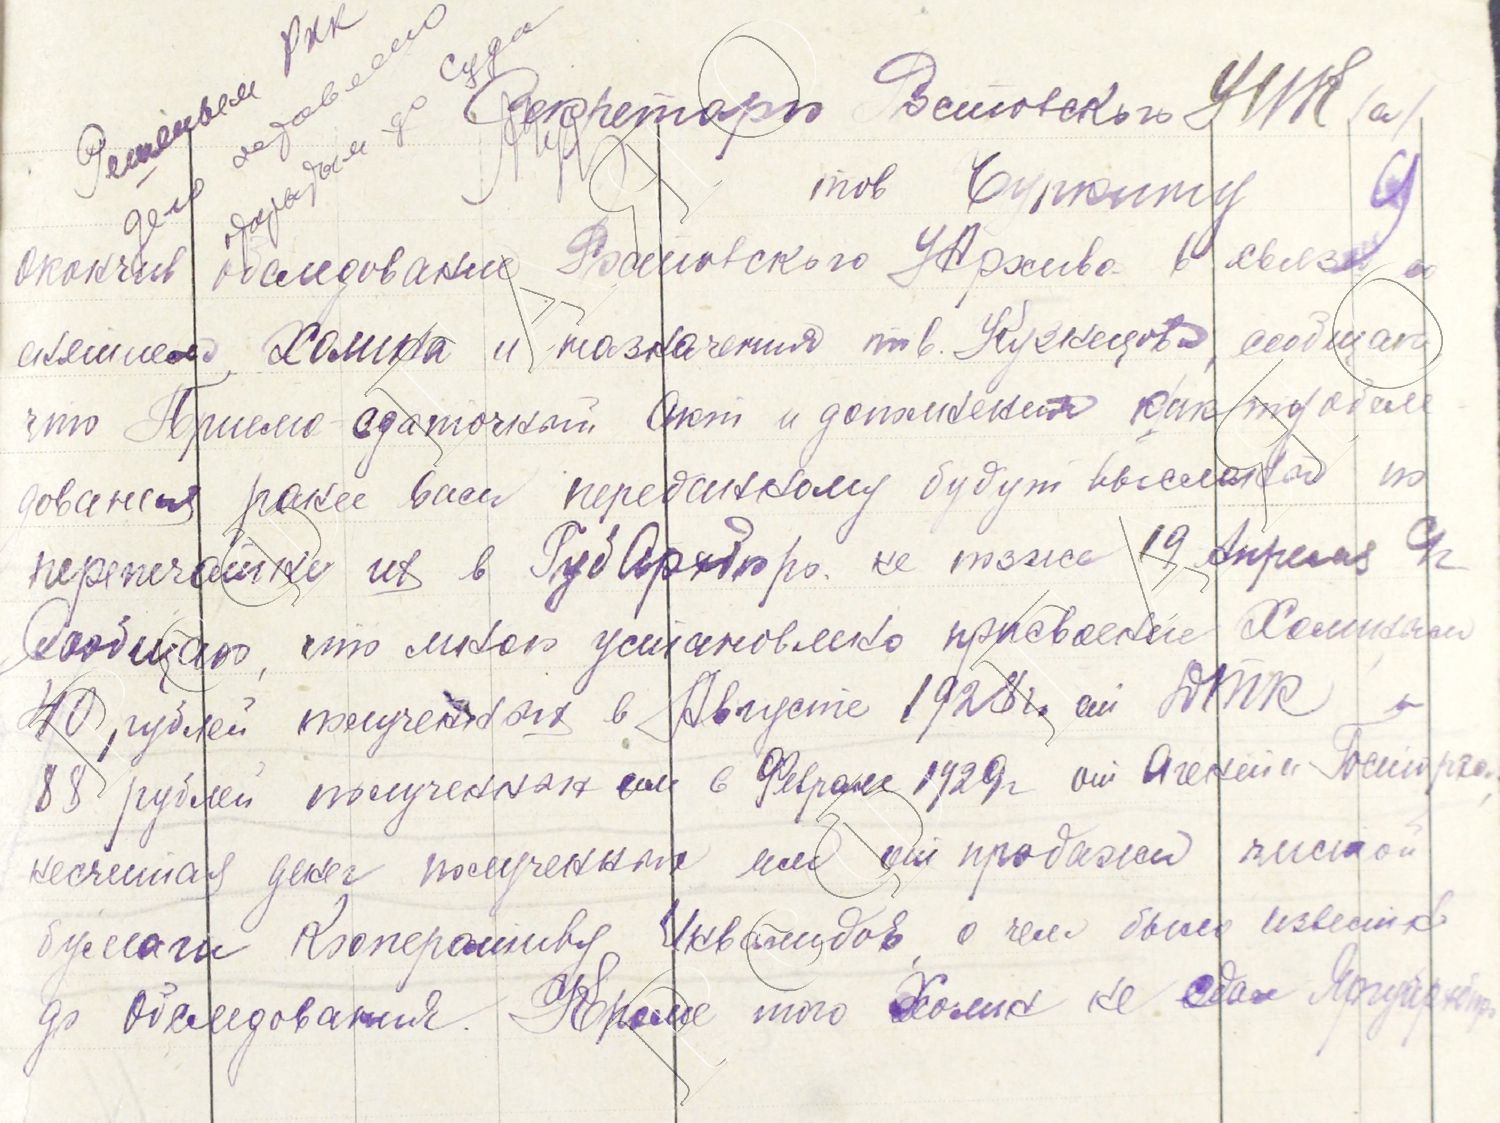 Решением РКК
дело направлено
до суда
Секретарю Ростовского УИК (а)
тов Чуркину
9
Окончив обследование Ростовского УАрхива в связи со
снятием Холина и назначения тов. Кузнецова, сообщаю
что Приемо-сдаточный Акт и дополнения к акту обсле-
дования ранее вам переданному будут высланы по
перепечатке их в ГубАрхбюро. не позже 19 Апреля с/г
Сообщаю, что мною установлено присвоение Холиным
40 рублей полученных в Августе 1928 г. от ДТК и
88 рублей полученных им в Феврале 1929 г от Агента Госторга,
несчитая денег полученных им от продажи чистой
бумаги Кооперативу Инвалидов, о чем было известно
до Обследования. Кроме того Холин не сдал
РОСТАРХИВ